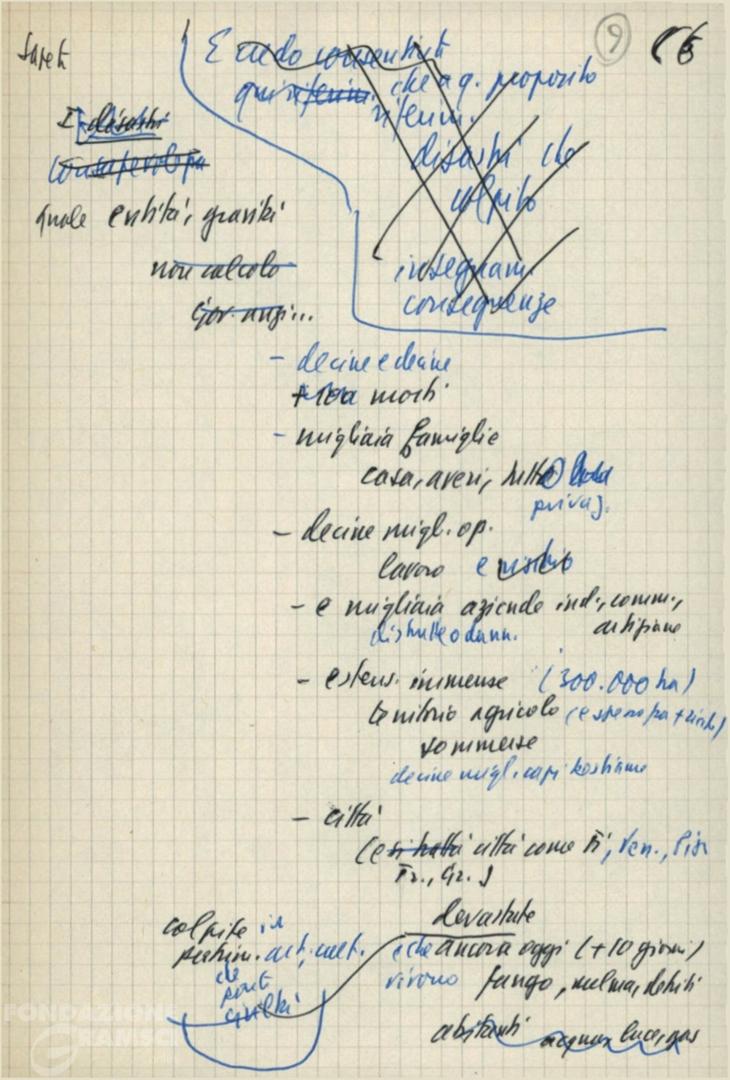 Sapete
9
E credo consentirete
qui riferim. che a q. proposito
riferim.
I disastri
disastri che
colpito
quale entità, gravità
insegnam.
conseguenze
non calcolo
Gov. anzi...
- decine e decine
+ 100 morti
- migliaia famiglie
casa, averi, tutto
privaz.
- decine migl. op.
lavoro e
- e migliaia aziende ind., comm.,
artigiane
distrutte o dann.
- estens. immense (300.000 ha)
territorio agricolo (e spesso
sommerse
decine migl. capi bestiame
- città
(e si tratta città come Fi, Ven., Pisa
Tr., Gr.)
devastate
colpite in
patrim. art., cult. e che ancora oggi (+ 10 giorni)
vivono fango, melma, detriti
che
sono
abitanti acqua, luce, gas
FONDAZIONE
GRAMSCI